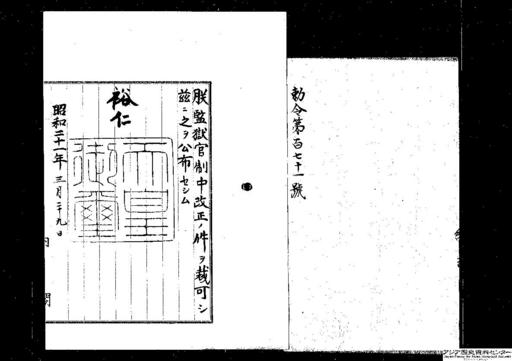 勅令第百七十一號
朕監獄官制中改正ノ件ヲ裁可シ
茲ニ之ヲ公布セシム
裕仁
天皇御璽
昭和二十一年三月二十九日
内閣
アジア歴史資料センター